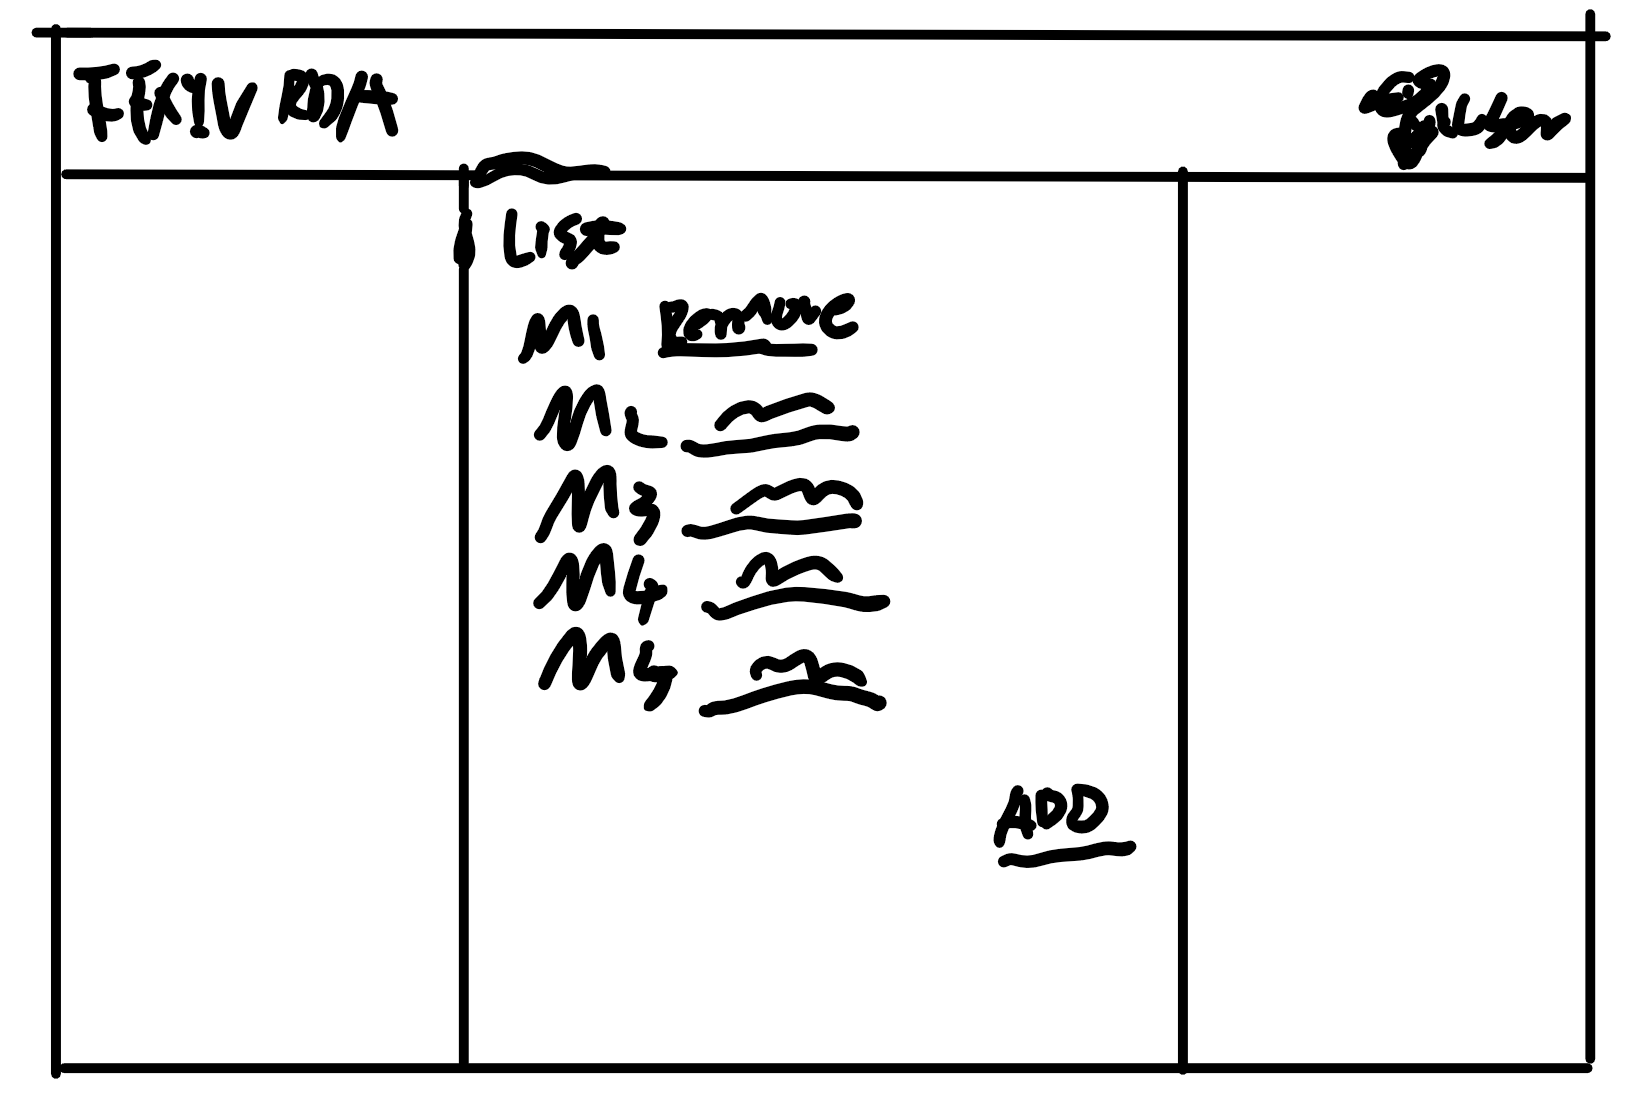 FFXIV RDA
List
M1 Remove
M2
M3
M4
M5
ADD